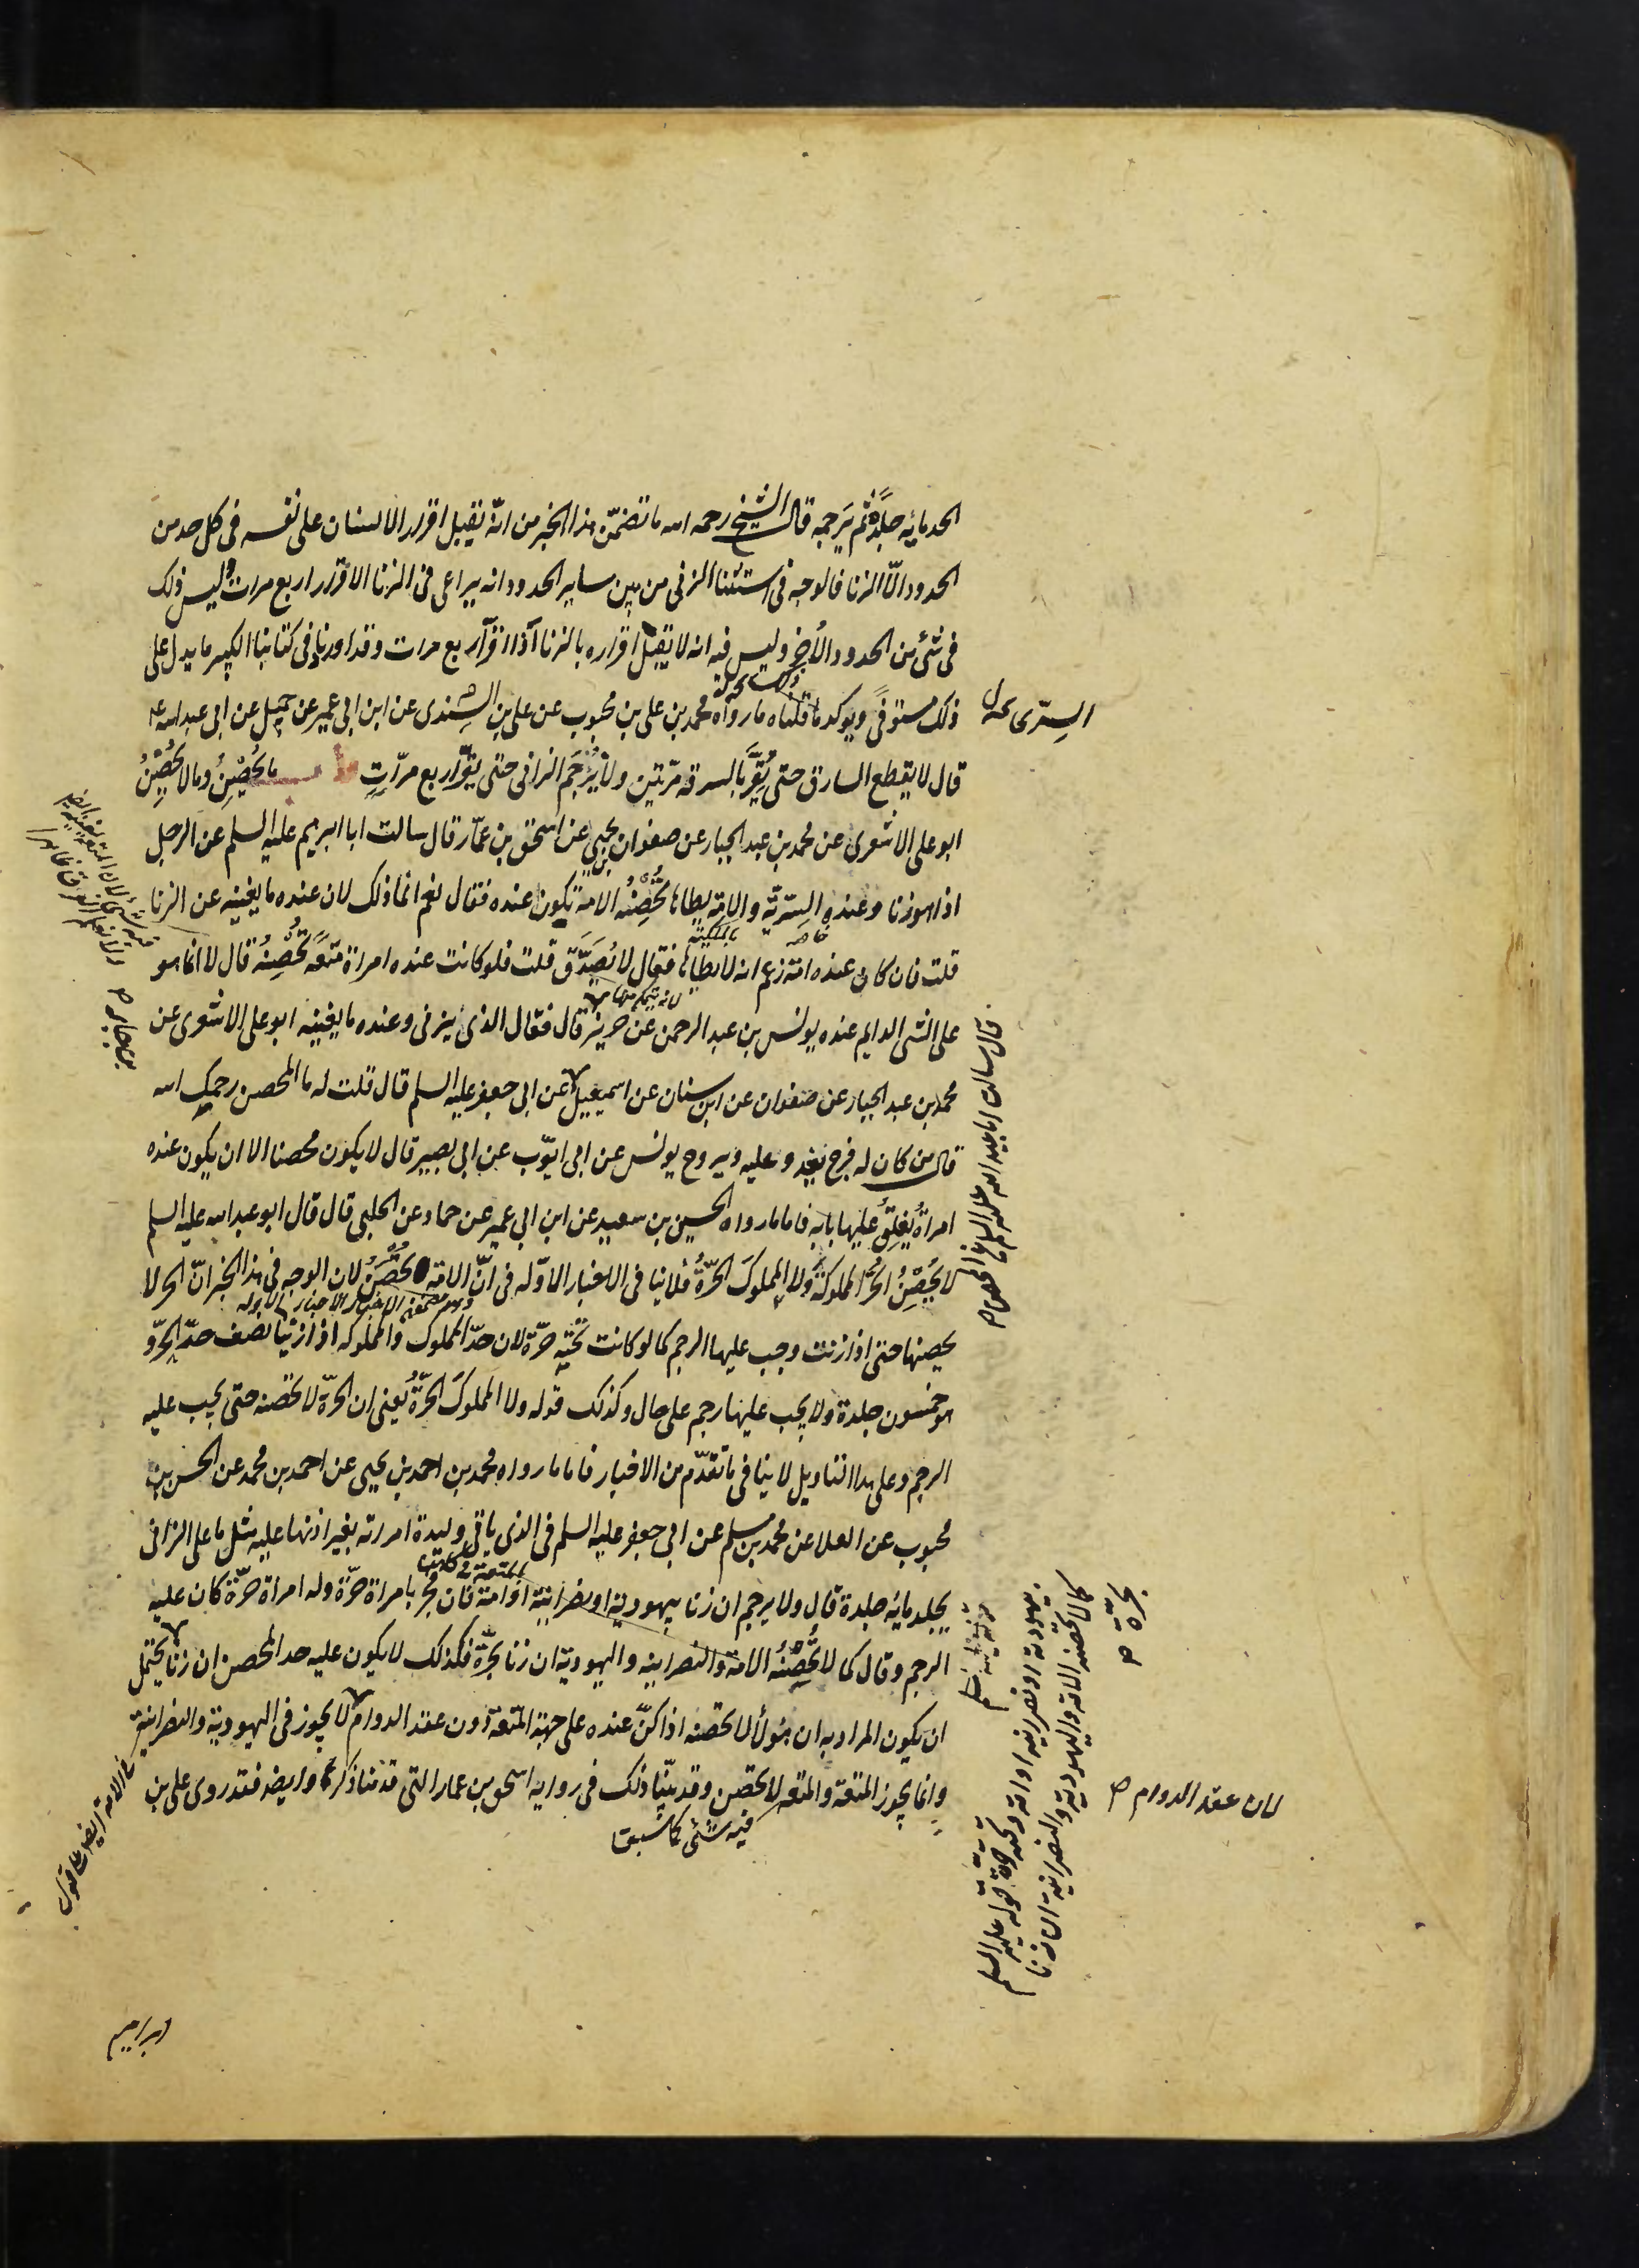 الحد مائه جلدة ثم يرجمه قال الشيخ رحمه الله ما تضمّن هذا الخبر من انّه يقبل اقرار الانسان على نفسه فى كل حد من
الحدود الّا الزنا فالوجه فى استثناء الزنى من بين ساير الحدود انه يراعى فى الزنا الاقرار اربع مرات وليس ذلك
فى شئ من الحدود الأخر وليس فيه انه لا يقبل اقراره بالزنا اذا اقرّ اربع مرات وقد اوردنا فى كتابنا الكبير ما يدل على
ذلك مستوفىً ويوكد ما قلناه ما رواه محمد بن على بن محبوب عن على بن السِّندى عن ابن ابى عمير عن جميل عن ابى عبد الله ع
قال لا يقطع السارق حتى يُقِرَّ بالسرقه مرّتين ولا يُرْجَم الزانى حتى يقرّ اربع مرّاتٍ ما يُحْصِنُ وما لا يُحْصِنُ
ابو على الاشعرى عن محمد بن عبد الجبار عن صفوان بن يحيى عن اسحق بن عمّار قال سالت ابا ابرهيم عليه السلم عن الرجل
اذا هو زنا وعنده السرّيّة والامة يطاها تُحْصِنُه الامة تكون عنده فقال نعم انما ذلك لان عنده ما يغنيه عن الزنا
قلت فان كان عنده امة زعم انه لا يطاها فقال لا يُصَدَّق قلت فلو كانت عنده امراة متعَةً تُحْصِنُه قال لا انما هو
على الشئ الدايم عنده يونس بن عبد الرحمن عن حريز قال فقال الذى يزنى وعنده ما يغنيه ابو على الاشعرى عن
محمد بن عبد الجبار عن صفوان عن ابن سنان عن اسمعيل عن ابى جعفر عليه السلم قال قلت له ما المحصن رحمك الله
قال من كان له فرج يغدو عليه ويروح يونس عن ابى ايّوب عن ابى بصير قال لا يكون محصنا الا ان يكون عنده
امراةٌ يُغلِقُ عليها بابه فاما ما رواه الحسين بن سعيد عن ابن ابى عمير عن حماد عن الحلبى قال قال ابو عبد الله عليه السلم
لا يُحْصِنُ الحُرُّ المملوكةَ ولا المملوكَ الحرّةُ فلا ينافى الاخبار الاوّله فى انّ الامة تُحْصِنُ لان الوجه فى هذا الخبر انّ الحر لا
يحصنها حتى اذا زنت وجب عليها الرجم كما لو كانت تحته حرّة لان حدّ المملوك والمملوكه اذا زنيا نصف حدّ الحرّ و
هو خمسون جلدة ولا يجب عليها رجم على حال وكذلك قوله ولا المملوكَ الحرّةُ يعنى ان الحرّة لا تحصنه حتى يجب عليه
الرجم وعلى هذا التاويل لا ينافى ما تقدّم من الاخبار فاما ما رواه محمد بن احمد بن يحيى عن احمد بن محمد عن الحسن بن
محبوب عن العلا عن محمد بن مسلم عن ابى جعفر عليه السلم فى الذى ياتى وليدة امراته بغير اذنها عليه مثل ما على الزانى
يجلد مائه جلدة قال ولا يرجم ان زنا بيهودية او نصرانية او امة فان فجر بامراة حرّة وله امراة حرّة كان عليه
الرجم وقال كما لا تُحْصِنُه الامة والنصرانيه واليهودية ان زنا بحرّة فكذلك لا يكون عليه حد المحصن ان زنا يحتمل
ان يكون المراد به ان هؤلاء لا تحصنه اذا كنّ عنده على جهة المتعة دون عقد الدوام لا يجوز فى اليهودية والنصرانية
وانما يجوز المتعة والمتعه لا تحصن وقد بيّنا ذلك فى رواية اسحق بن عمار التى قدمنا ذكرها وايضا فقد روى على بن
فيه شئ كما سبقا
السِّرّى
قال سالت ابا عبد الله عليه السلم عن المحصن
بيهودية او نصرانية او امة وتحته حرّة قوله عليه السلم
كما لا تحصنه الامة واليهودية والنصرانية ان زنا
بحرّة ص
لان عقد الدوام ص
ابراهيم